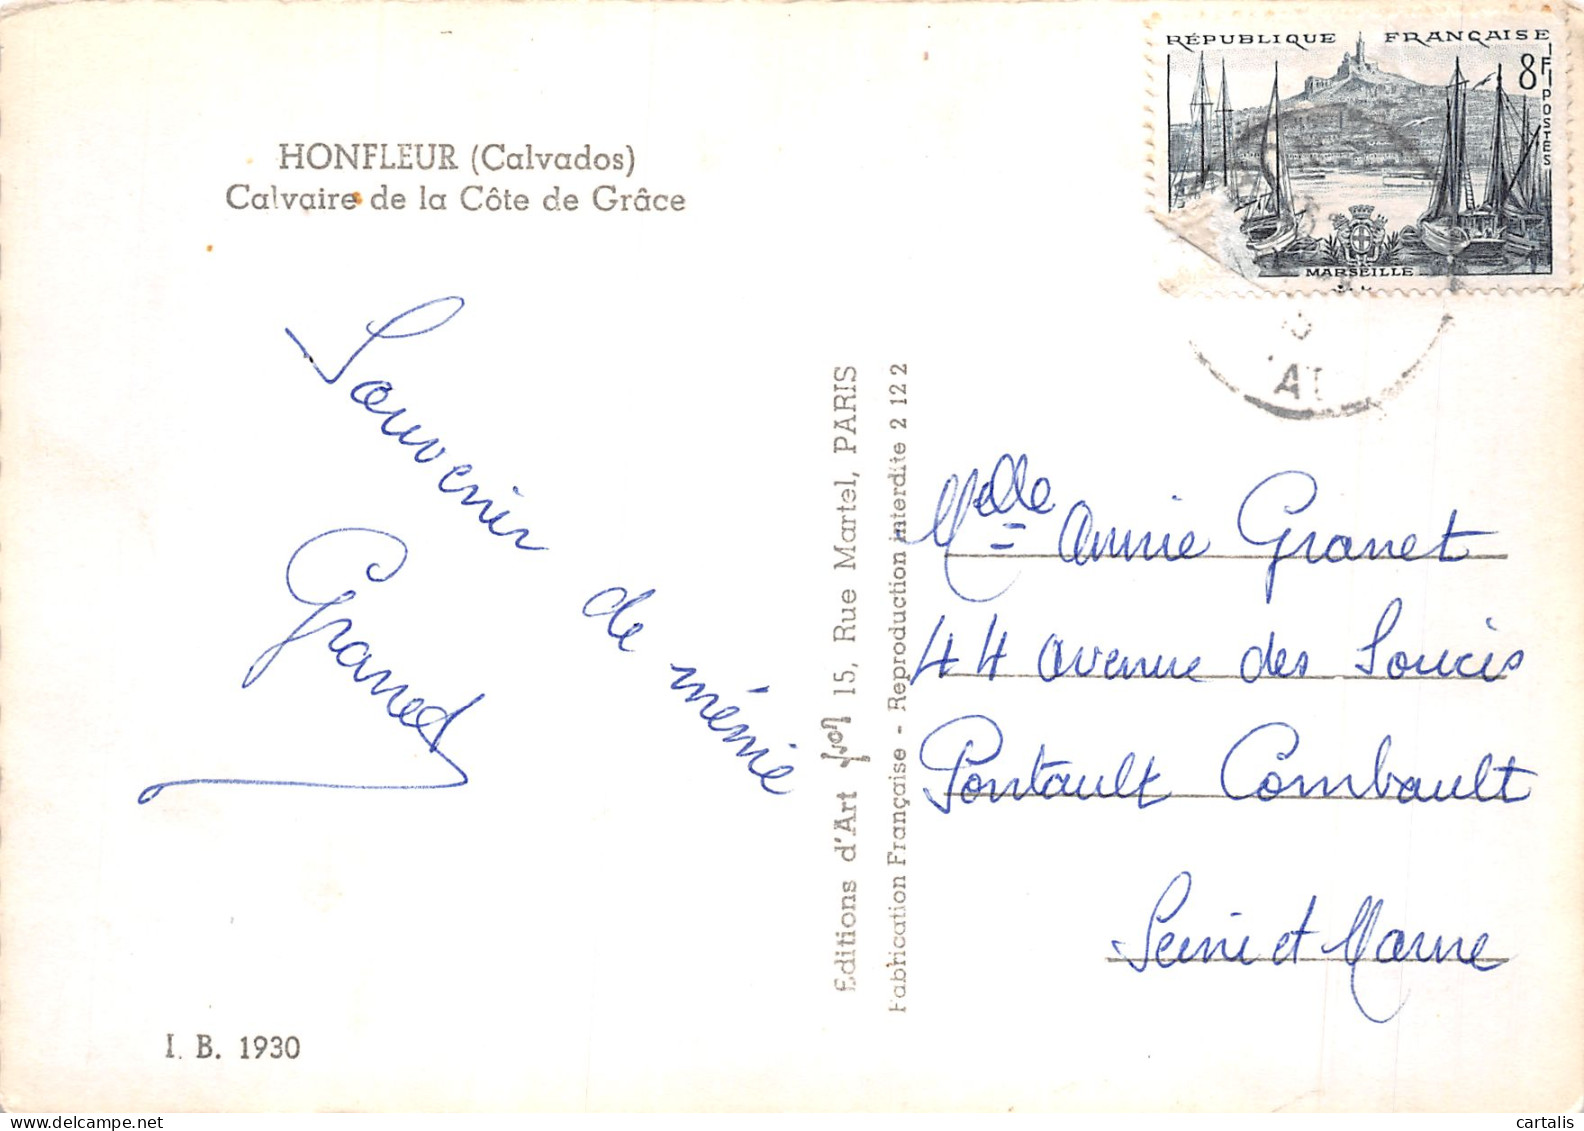 HONFLEUR (Calvados)
Calvaire de la Côte de Grâce
Souvenir de mémie
Granet
I. B. 1930
Editions d'Art Yvon 15, Rue Martel, PARIS
Fabrication Française - Reproduction interdite 2 12 2
RÉPUBLIQUE FRANÇAISE
8F
POSTES
MARSEILLE
Melle Annie Granet
44 avenue des Soucis
Pontault Combault
Seine et Marne
cartalis